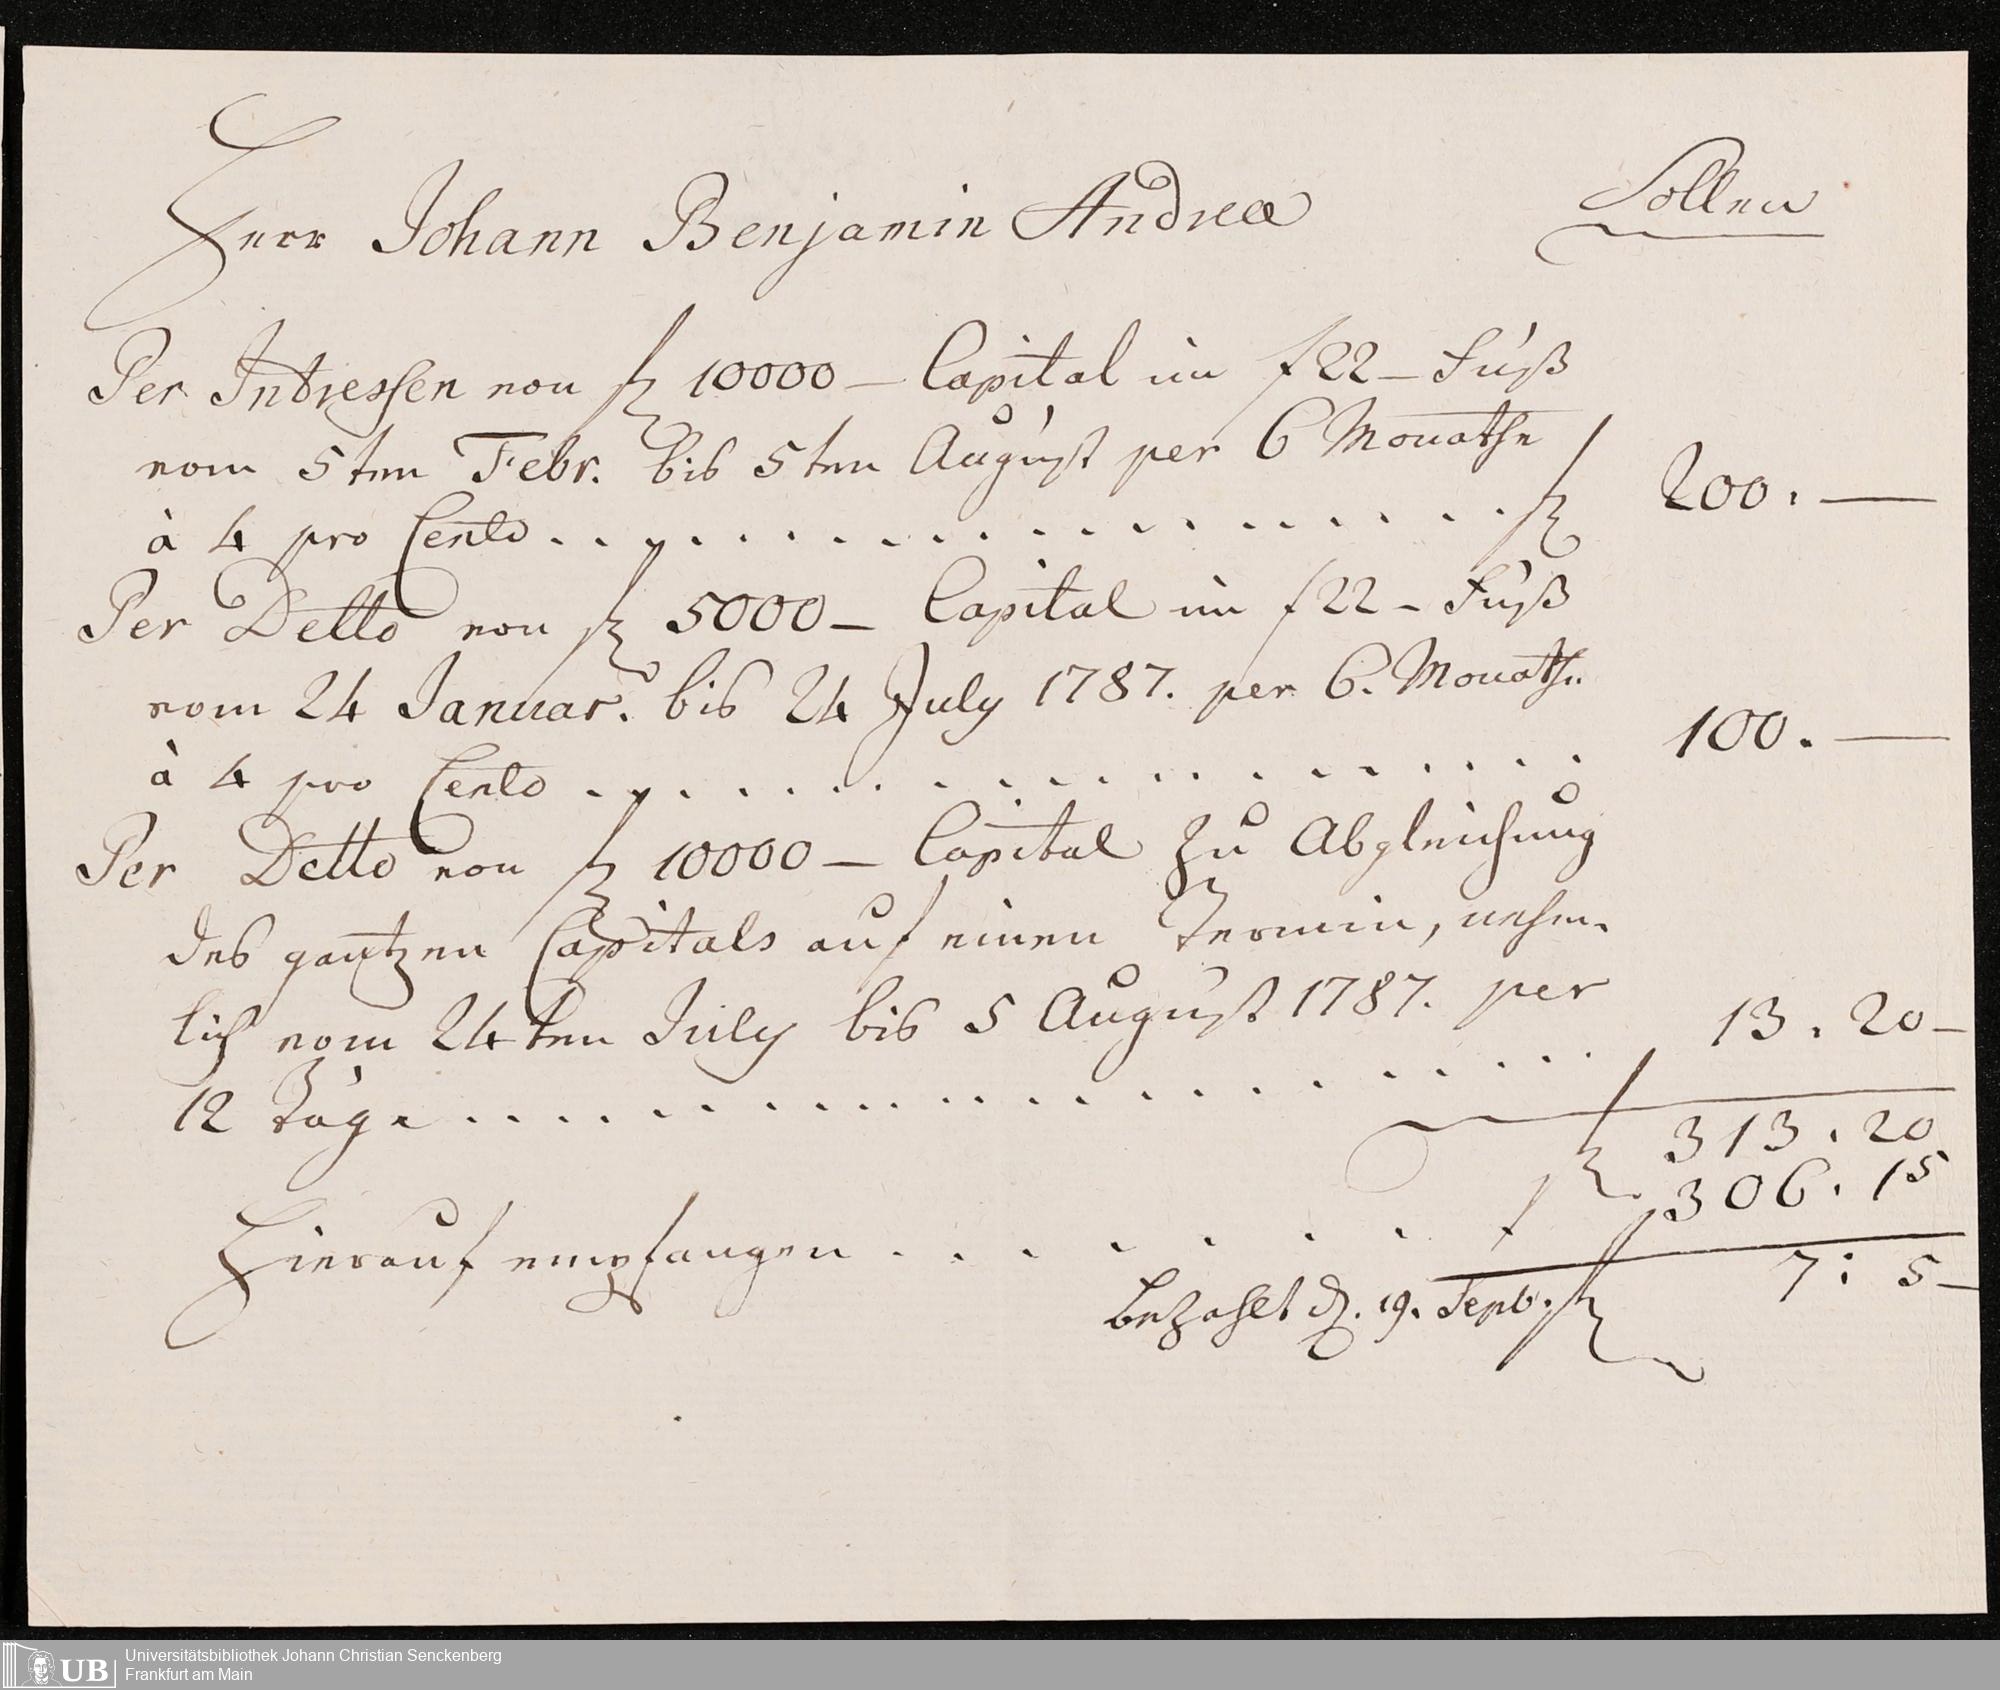 Herr Johann Benjamin Andreæ Sollen
Per Intressen von fl 10000 — Capital im f 22 — Fuß
vom 5ten Febr. bis 5ten August per 6 Monathe
à 4 pro Cento . . . . . . . . . . . . . . . fl 200. —
Per Detto von fl 5000 — Capital im f 22 — Fuß
vom 24 Januar. bis 24 July 1787. per 6. Monathe
à 4 pro Cento . . . . . . . . . . . . . . . 100. —
Per Detto von fl 10000 — Capital zu Abgleichung
des gantzen Capitals auf einen Termin, nehm-
lich vom 24ten July bis 5 August 1787. per
12 Täge . . . . . . . . . . . . . . . 13. 20 —
fl 313. 20
Hierauf empfangen . . . . . . . . f 306. 15
fl 7: 5 —
bezahlt d. 19. Septb.
UB Universitätsbibliothek Johann Christian Senckenberg
Frankfurt am Main